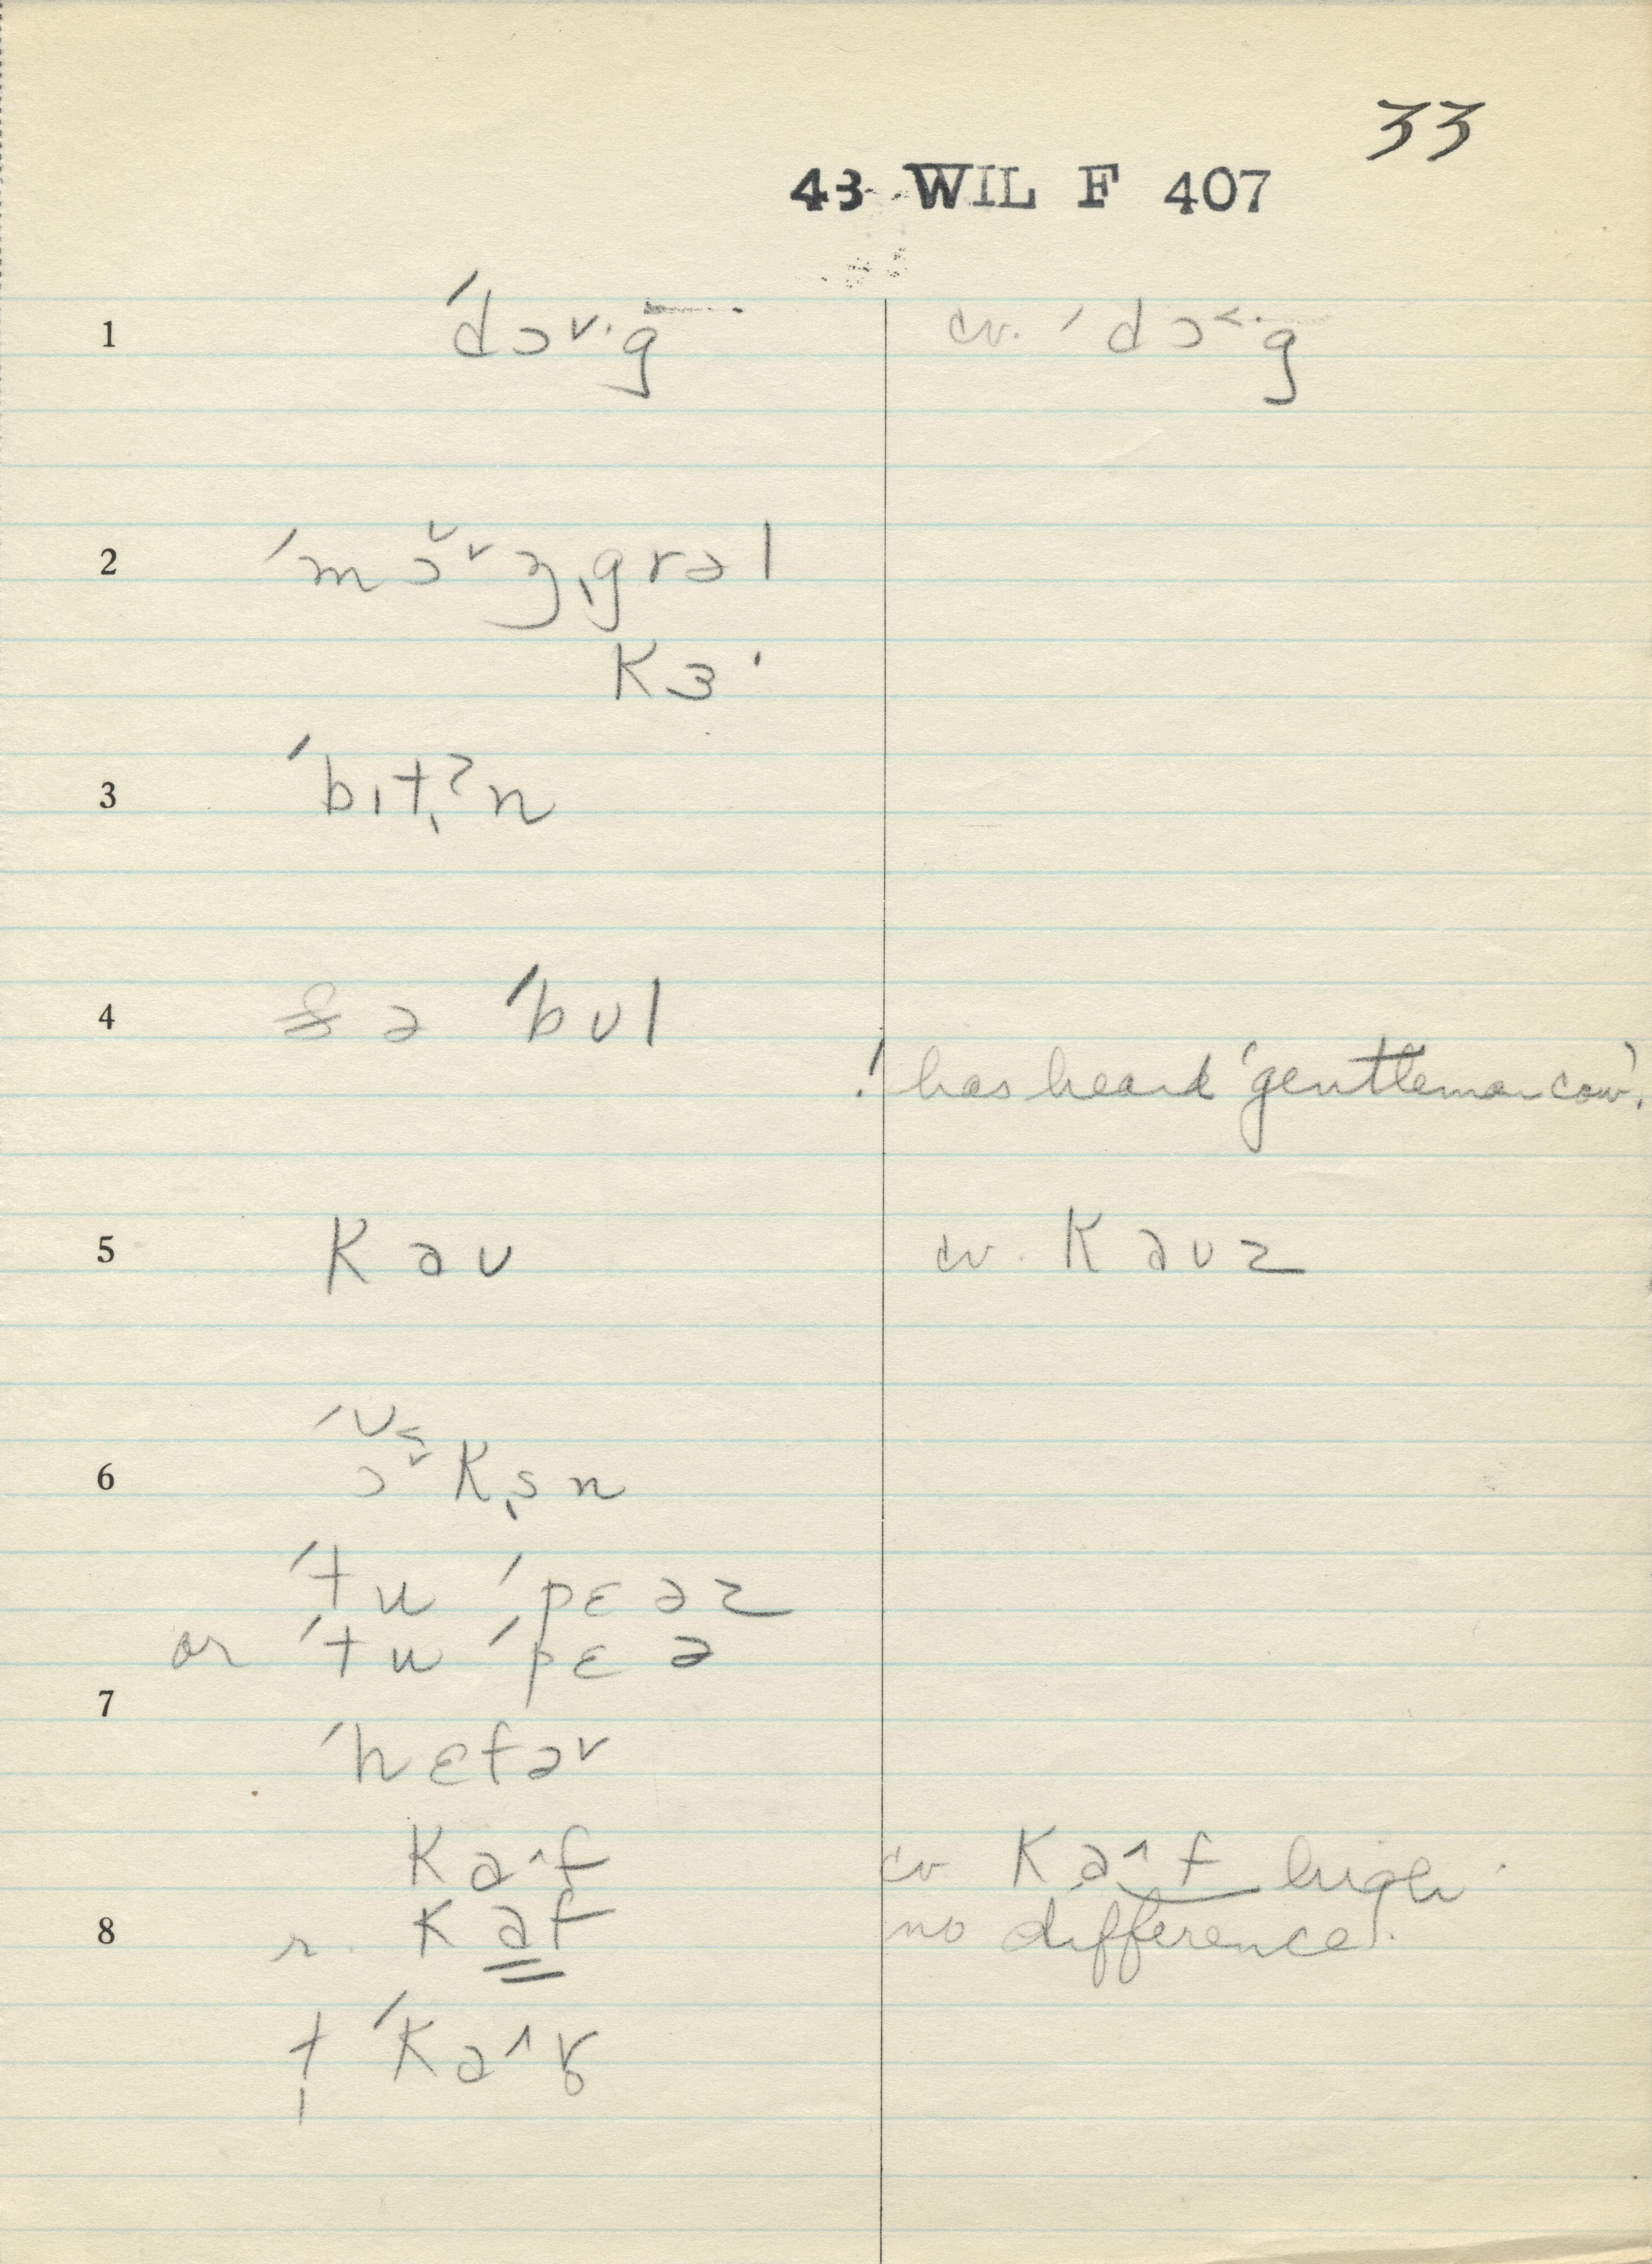 33
43 WIL F 407
1 ˈdɔ˅·g cv. ˈdɔ˂·g
2 ˈmɔ̆˅ŋˌgrəl
kɜ·
3 ˈbɪt̩ʔn
4 ə ˈbʊl
! has heard 'gentleman cow'.
5 kaʊ cv. kaʊz
6
ˈtu ˈpɛəz
or ˈtu ˈpɛə
7
ˈhɛfə˅
ka^f cv ka^f high
8 r. kaf no difference.
† ˈka^